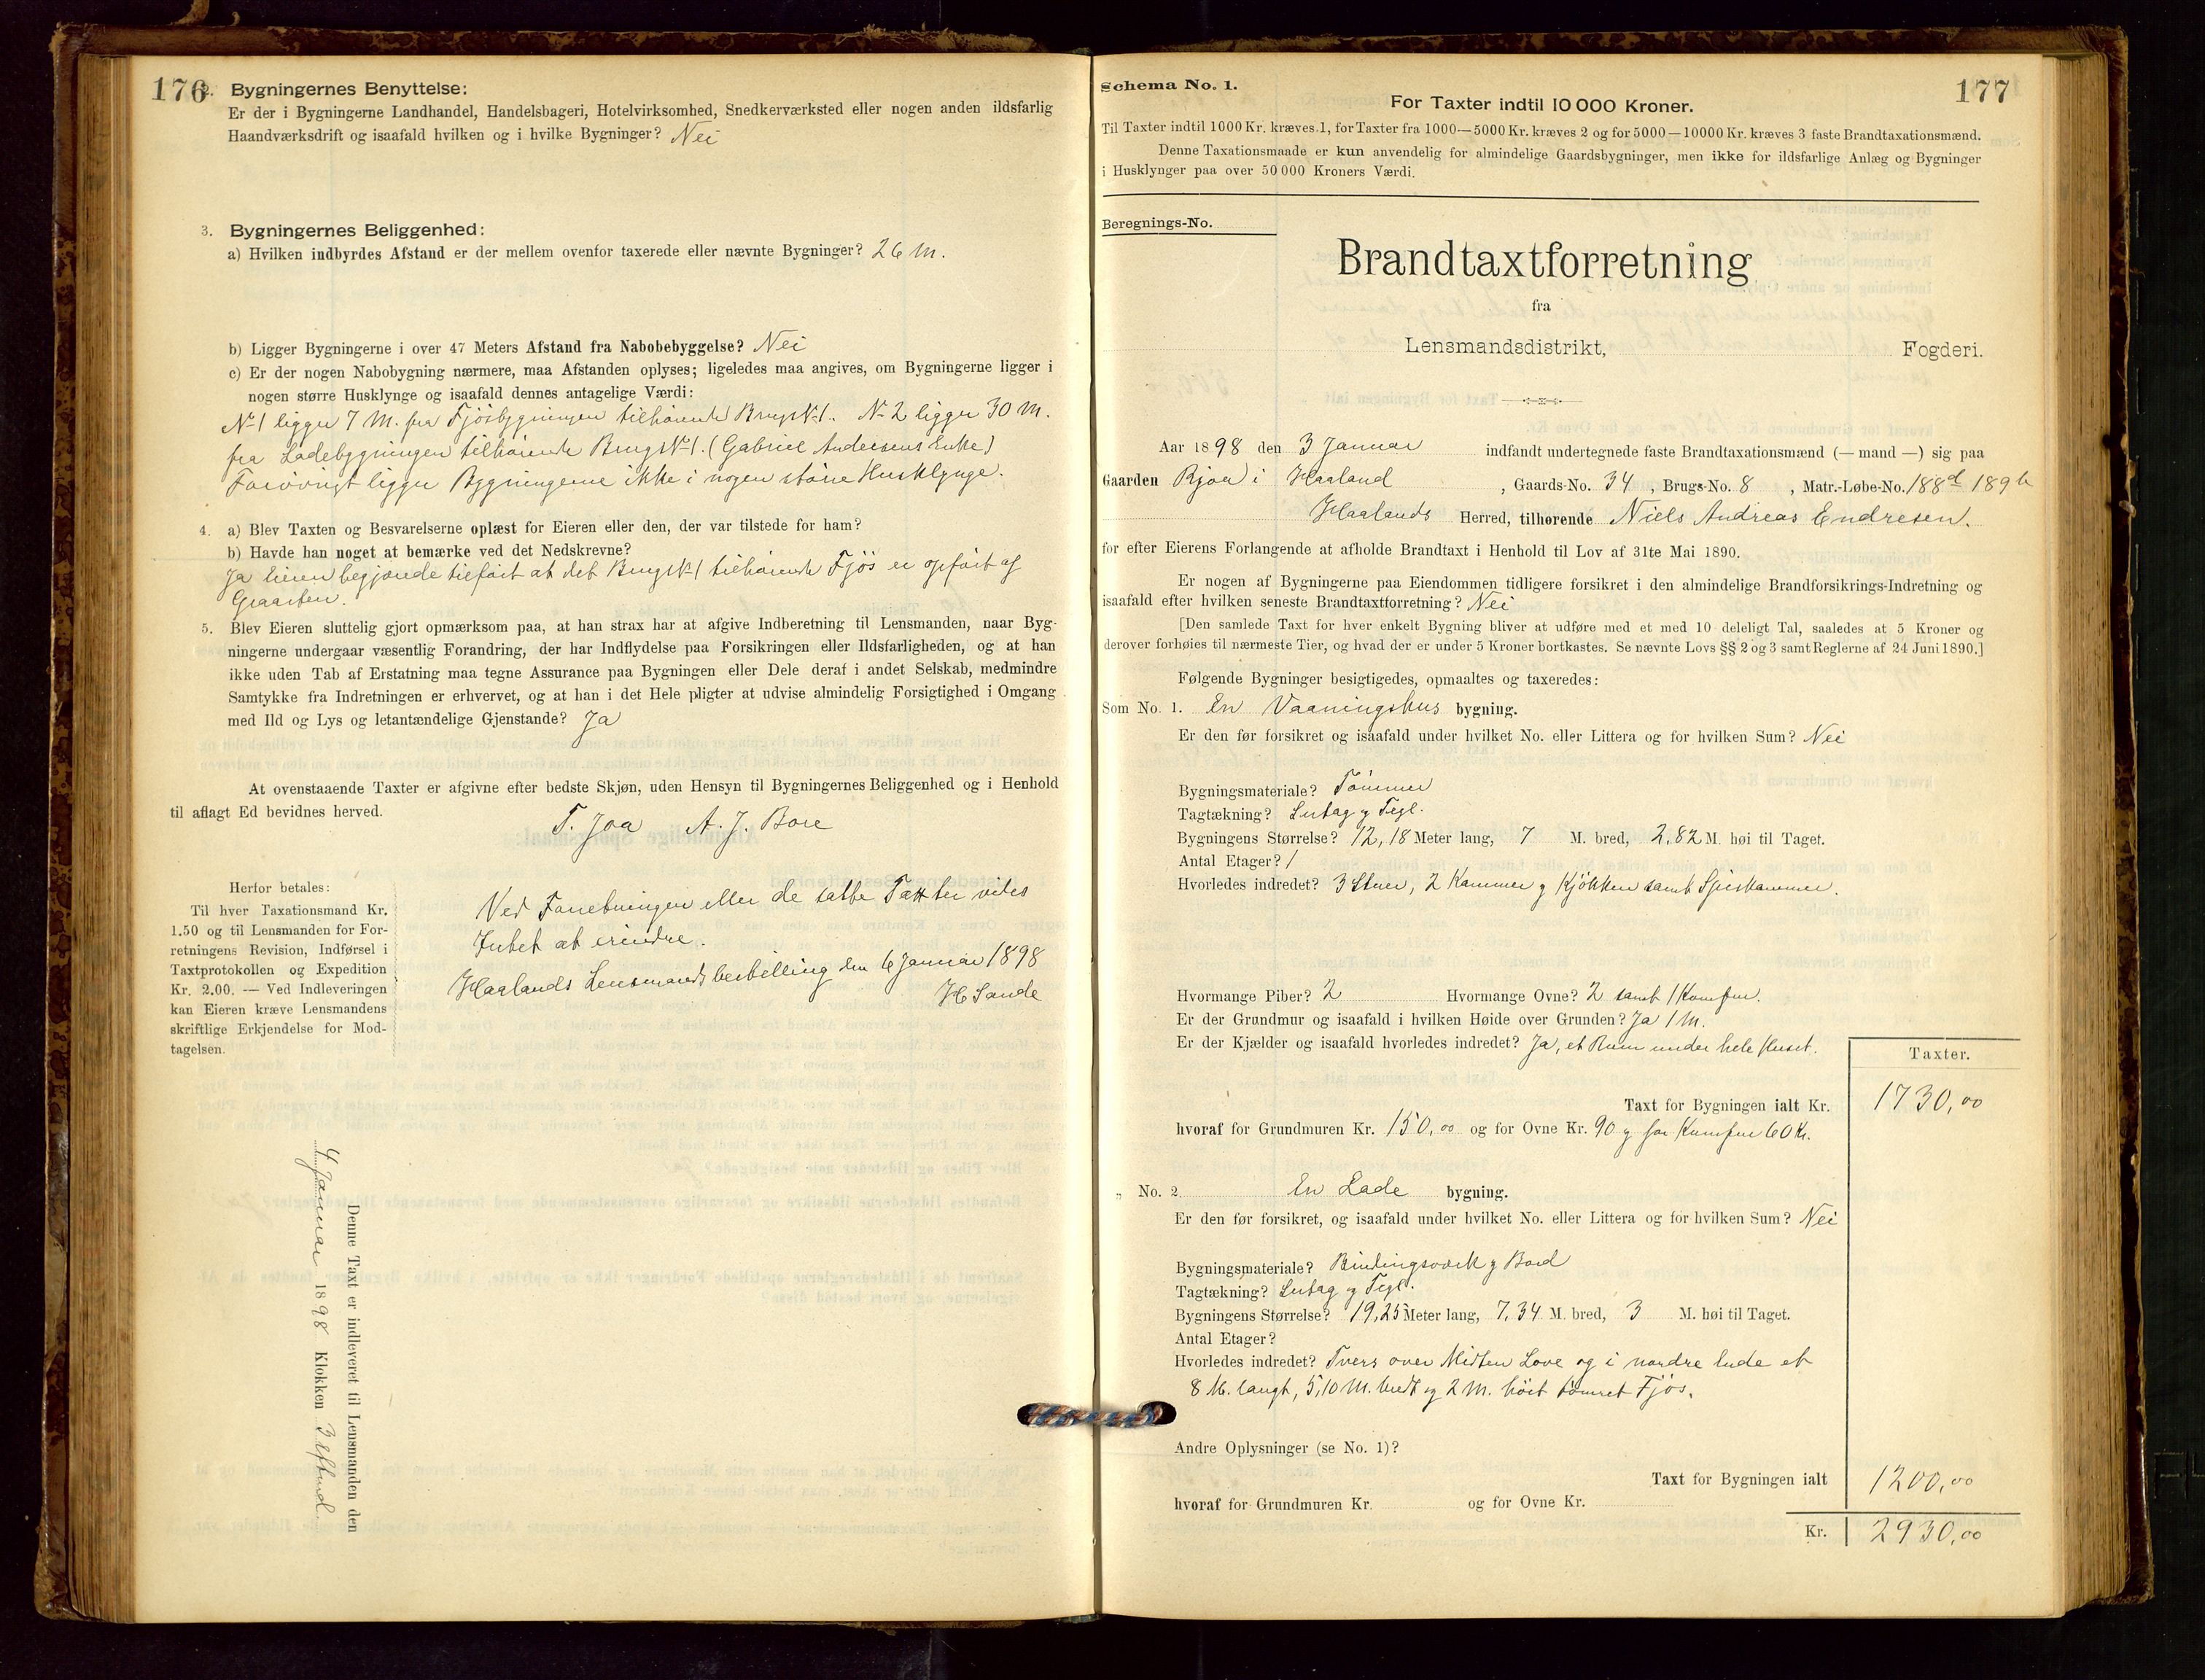 176
2. Bygningernes Benyttelse:
Er der i Bygningerne Landhandel, Handelsbageri, Hotelvirksomhed, Snedkerværksted eller nogen anden ildsfarlig
Haandværksdrift og isaafald hvilken og i hvilke Bygninger? Nei
3. Bygningernes Beliggenhed:
a) Hvilken indbyrdes Afstand er der mellem ovenfor taxerede eller nævnte Bygninger? 26 M.
b) Ligger Bygningerne i over 47 Meters Afstand fra Nabobebyggelse? Nei
c) Er der nogen Nabobygning nærmere, maa Afstanden oplyses; ligeledes maa angives, om Bygningerne ligger i
nogen større Husklynge og isaafald dennes antagelige Værdi:
No 1 ligger 7 M. fra Fjøsbygningen tilhørende Brugs No 1. No 2 ligger 30 M.
fra Ladebygningen tilhørende Brugs No 1. (Gabriel Andersens Enke)
Forøvrigt ligger Bygningerne ikke i nogen større Husklynge.
4. a) Blev Taxten og Besvarelserne oplæst for Eieren eller den, der var tilstede for ham?
b) Havde han noget at bemærke ved det Nedskrevne?
Ja Eieren begjærede tilført at det Brugs No 1 tilhørende Fjøs er opført af
Graasten.
5. Blev Eieren sluttelig gjort opmærksom paa, at han strax har at afgive Indberetning til Lensmanden, naar Byg-
ningerne undergaar væsentlig Forandring, der har Indflydelse paa Forsikringen eller Ildsfarligheden, og at han
ikke uden Tab af Erstatning maa tegne Assurance paa Bygningen eller Dele deraf i andet Selskab, medmindre
Samtykke fra Indretningen er erhvervet, og at han i det Hele pligter at udvise almindelig Forsigtighed i Omgang
med Ild og Lys og letantændelige Gjenstande? Ja
At ovenstaaende Taxter er afgivne efter bedste Skjøn, uden Hensyn til Bygningernes Beliggenhed og i Henhold
til aflagt Ed bevidnes herved.
T. Joa A. J. Bore
Herfor betales:
Til hver Taxationsmand Kr.
1.50 og til Lensmanden for For-
retningens Revision, Indførsel i
Taxtprotokollen og Expedition
Kr. 2.00. — Ved Indleveringen
kan Eieren kræve Lensmandens
skriftlige Erkjendelse for Mod-
tagelsen.
Ved Forretningen eller de satte Taxter vides
Intet at erindre.
Haalands Lensmandsbestilling den 6 Januar 1898
H Sande
Denne Taxt er indleveret til Lensmanden den
4 Januar 1898 Klokken 3 Eftmd.
Schema No. 1.
177
For Taxter indtil 10 000 Kroner.
Til Taxter indtil 1000 Kr. kræves 1, for Taxter fra 1000—5000 Kr. kræves 2 og for 5000—10000 Kr. kræves 3 faste Brandtaxationsmænd.
Denne Taxationsmaade er kun anvendelig for almindelige Gaardsbygninger, men ikke for ildsfarlige Anlæg og Bygninger
i Husklynger paa over 50 000 Kroners Værdi.
Beregnings-No.
Brandtaxtforretning
fra
Lensmandsdistrikt, Fogderi.
Aar 1898 den 3 Januar indfandt undertegnede faste Brandtaxationsmænd (— mand —) sig paa
Gaarden Rjoa i Haaland, Gaards-No. 34, Brugs-No. 8, Matr.-Løbe-No. 188d 189b
Haalands Herred, tilhørende Niels Andreas Endresen.
for efter Eierens Forlangende at afholde Brandtaxt i Henhold til Lov af 31te Mai 1890.
Er nogen af Bygningerne paa Eiendommen tidligere forsikret i den almindelige Brandforsikrings-Indretning og
isaafald efter hvilken seneste Brandtaxtforretning? Nei
[Den samlede Taxt for hver enkelt Bygning bliver at udføre med et med 10 deleligt Tal, saaledes at 5 Kroner og
derover forhøies til nærmeste Tier, og hvad der er under 5 Kroner bortkastes. Se nævnte Lovs §§ 2 og 3 samt Reglerne af 24 Juni 1890.]
Følgende Bygninger besigtigedes, opmaaltes og taxeredes:
Som No. 1. En Vaaningshus bygning.
Er den før forsikret og isaafald under hvilket No. eller Littera og for hvilken Sum? Nei
Bygningsmateriale? Tømmer
Tagtækning? Sutag og Tegl.
Bygningens Størrelse? 12,18 Meter lang, 7 M. bred, 2,82 M. høi til Taget.
Antal Etager? 1
Hvorledes indredet? 3 Stuer, 2 Kammer og Kjøkken samt Spiskammer.
Hvormange Piber? 2 Hvormange Ovne? 2 samt 1 Komfur.
Er der Grundmur og isaafald i hvilken Høide over Grunden? Ja 1 M.
Er der Kjælder og isaafald hvorledes indredet? Ja, et Rum under hele Huset.
Taxter.
Taxt for Bygningen ialt Kr. 1730,00
hvoraf for Grundmuren Kr. 150,00 og for Ovne Kr. 90 og for Komfur 60 Kr.
„ No. 2. En Lade bygning.
Er den før forsikret, og isaafald under hvilket No. eller Littera og for hvilken Sum? Nei
Bygningsmateriale? Bindingsværk og Bord
Tagtækning? Sutag og Tegl.
Bygningens Størrelse? 19,25 Meter lang, 7,34 M. bred, 3 M. høi til Taget.
Antal Etager?
Hvorledes indredet? Tvers over Midten Love og i nordre Ende et
8 M. langt, 5,10 M. bredt og 2 M. høit tømret Fjøs.
Andre Oplysninger (se No. 1)?
Taxt for Bygningen ialt 1200,00
hvoraf for Grundmuren Kr. og for Ovne Kr.
Kr. 2930,00